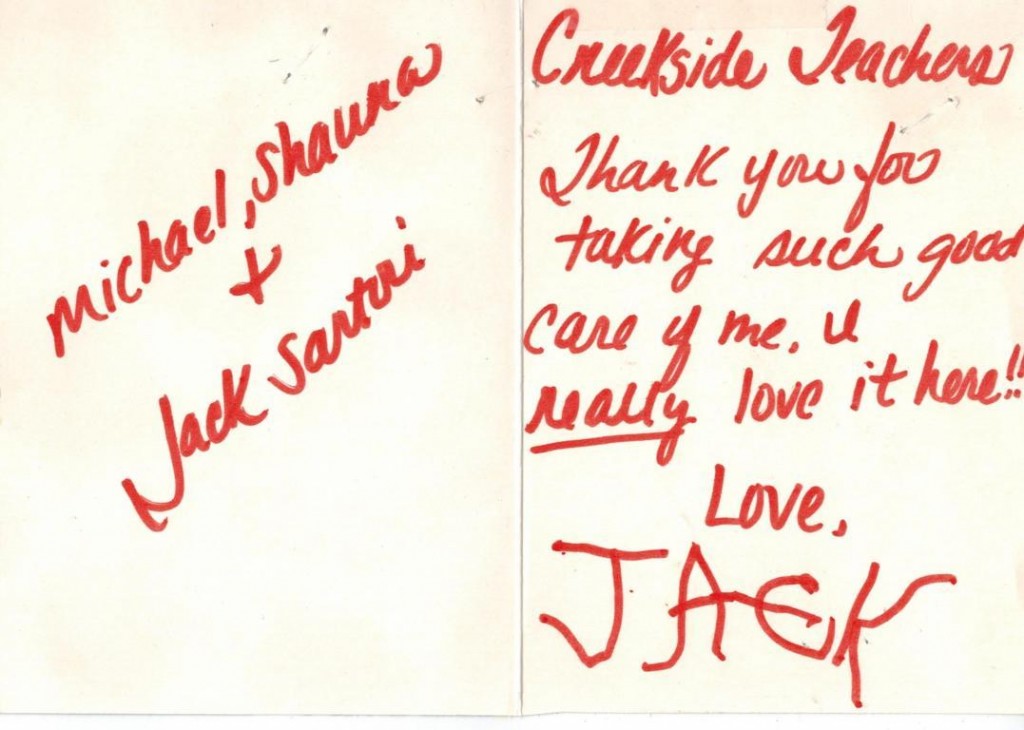 Michael, Shauna
+
Jack Sartori
Creekside Teachers
Thank you for
taking such good
care of me. I
really love it here!!
Love,
JACK